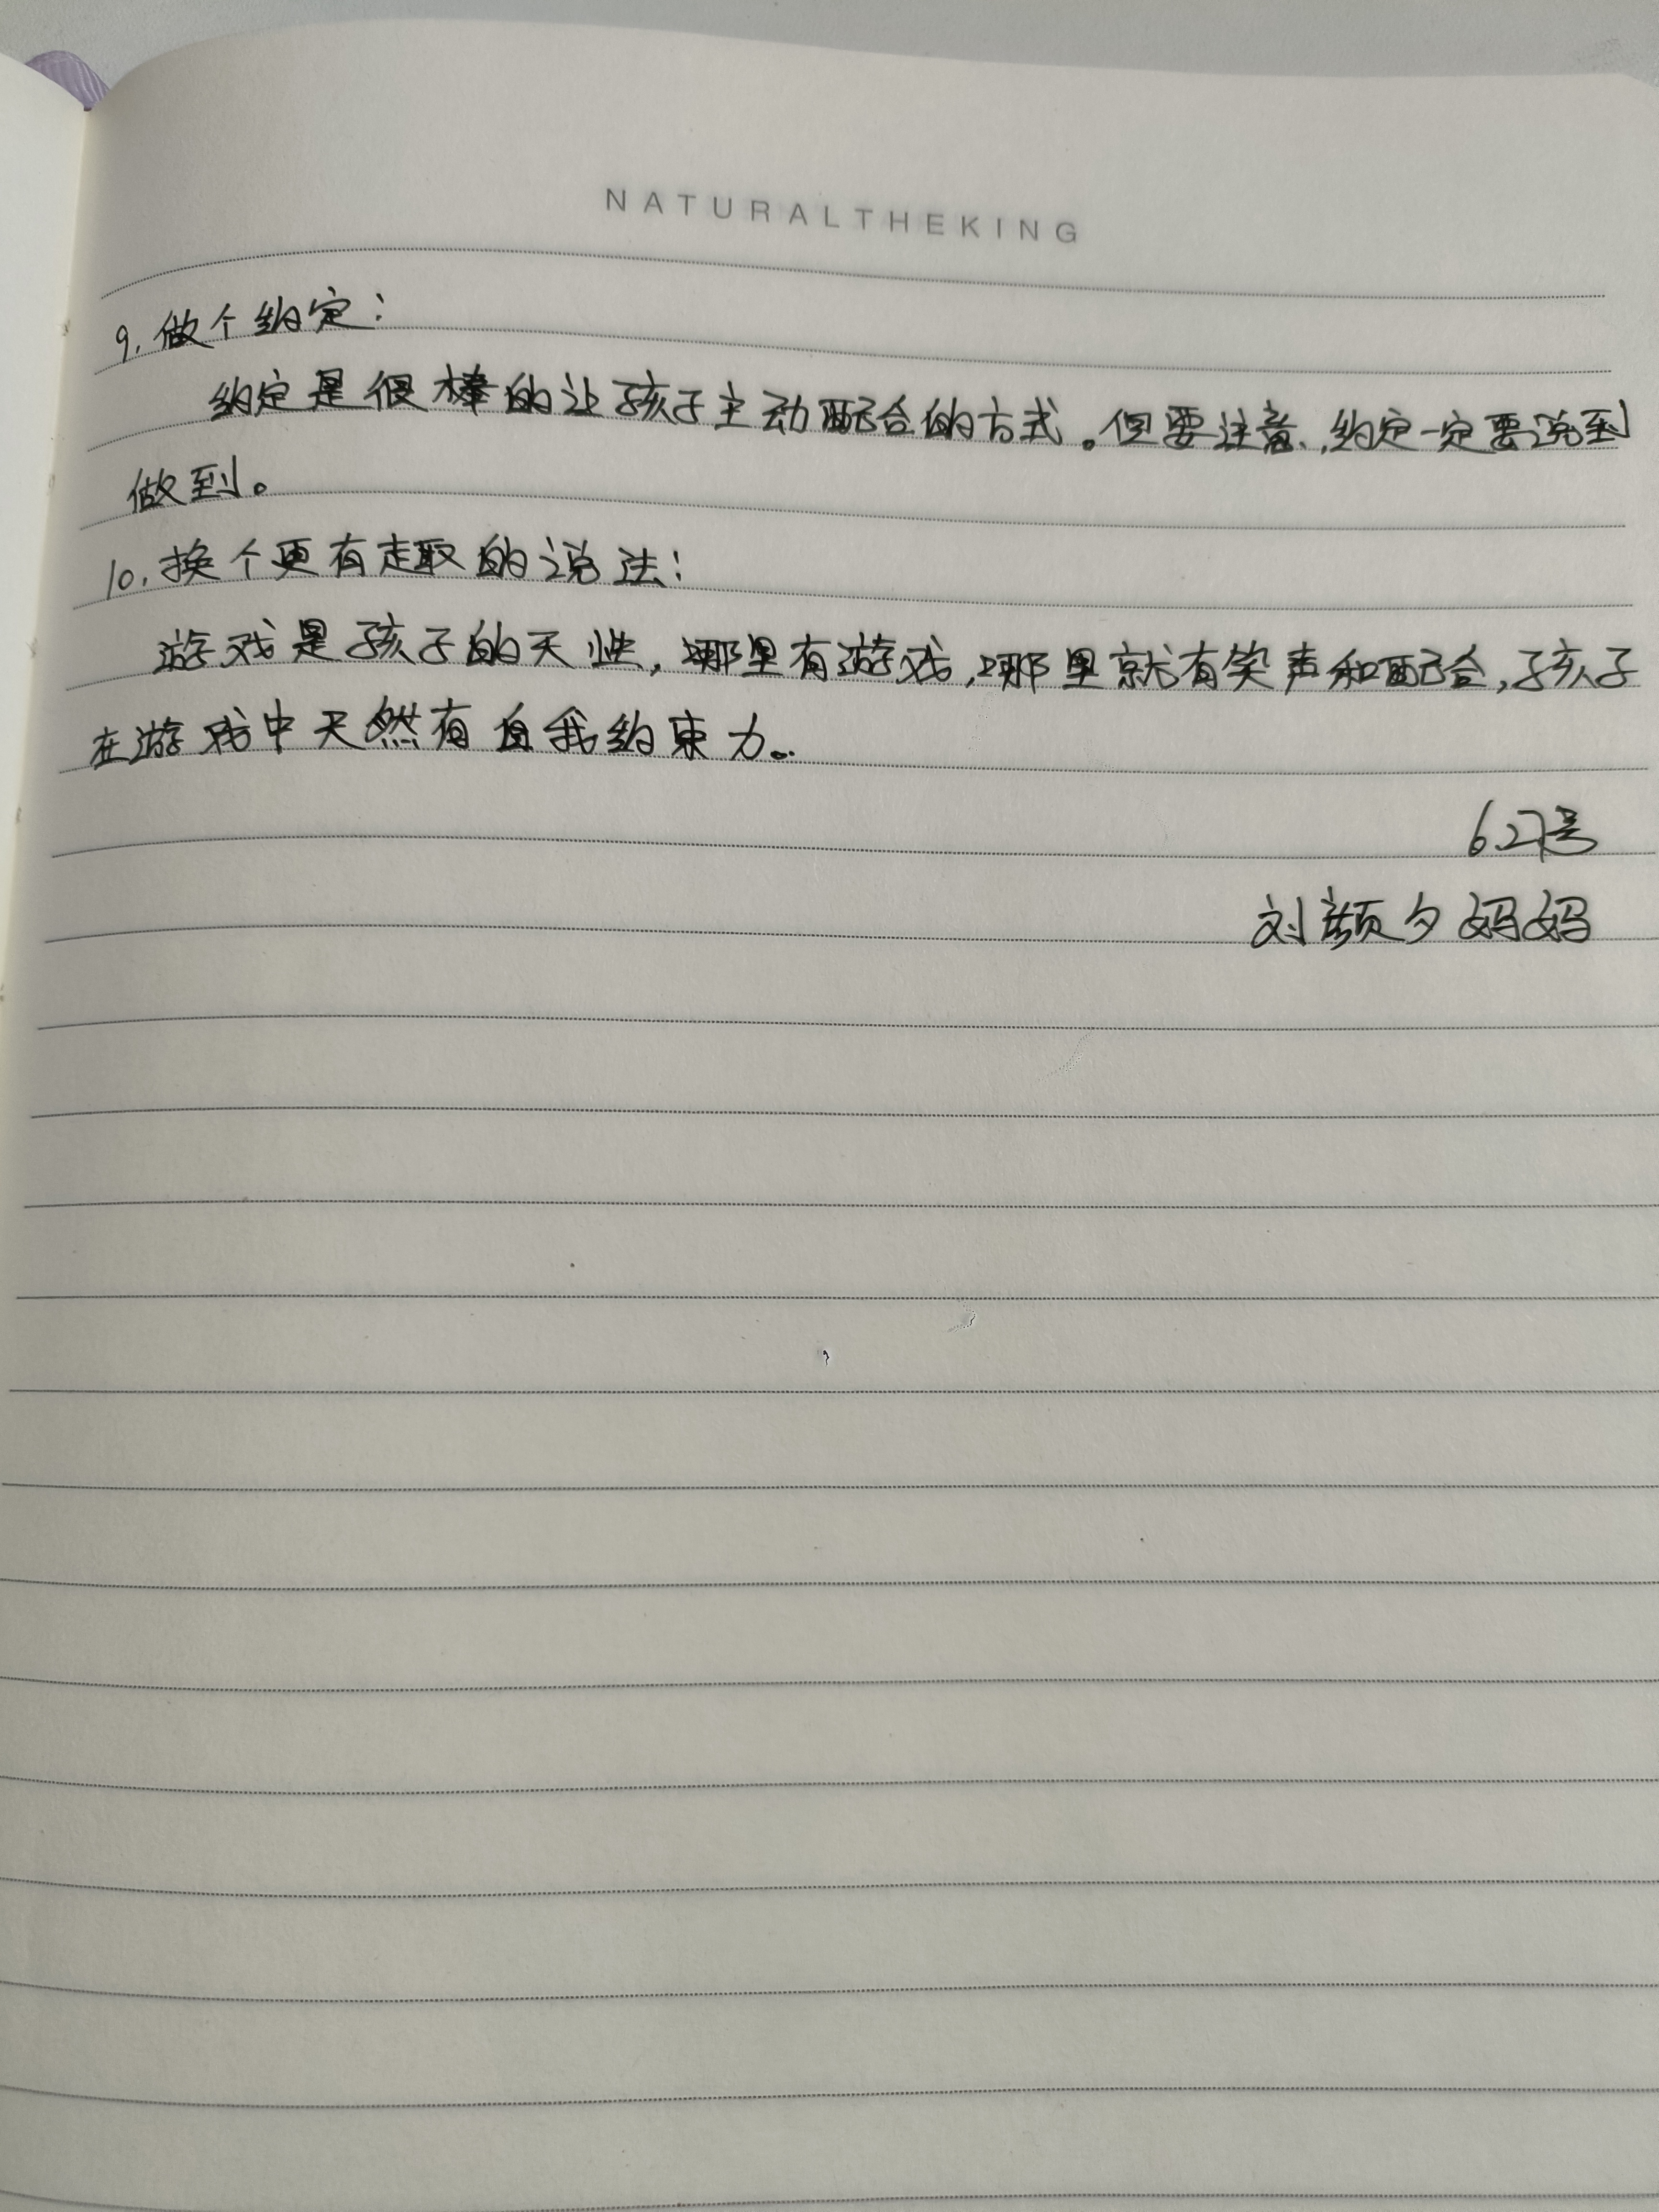 NATURALTHEKING
9.做个约定:
约定是很棒的让孩子主动配合的方式。但要注意,约定一定要说到
做到。
10.换个更有趣的说法:
游戏是孩子的天性,哪里有游戏,哪里就有笑声和配合,孩子
在游戏中天然有自我约束力。
6.27号
刘颜夕妈妈